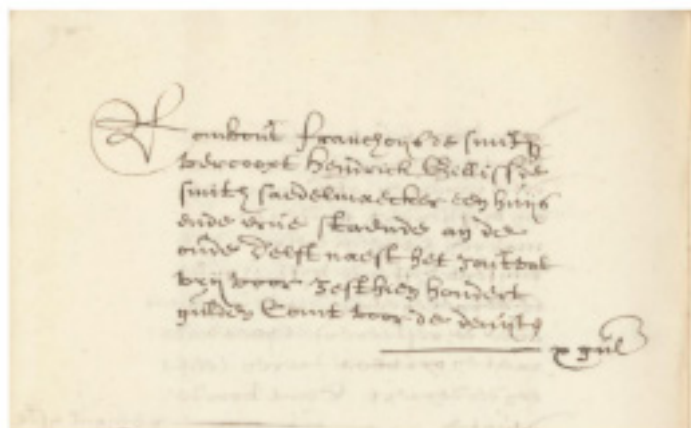 Franchoijs de Smith
vercooxt Hendrick Gillisse
Smith sadelmaecker een huijs
ende erve staende aen de
oude Delft naest het
vrij voor zesthien hondert
gulden Comt voor de
x gul